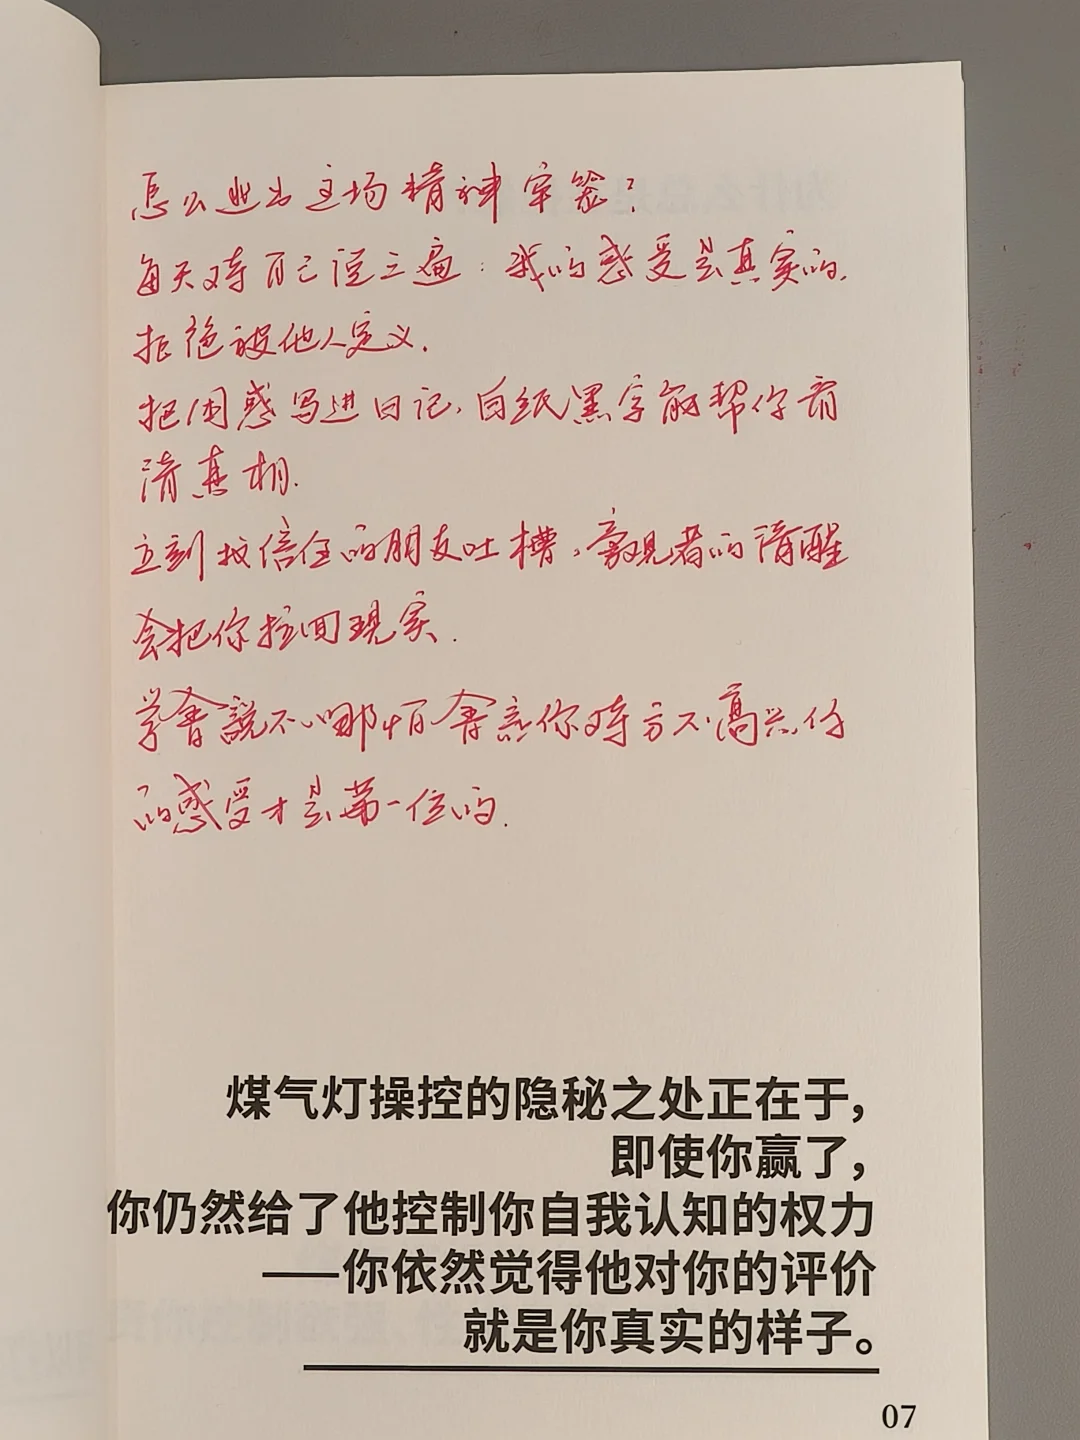 怎么逃出这场精神牢笼?
每天对自己说三遍:我的感受是真实的.
拒绝被他人定义.
把困惑写进日记,白纸黑字能帮你看
清真相.
立刻找信任的朋友吐槽,旁观者的清醒
会把你拉回现实.
学會說不,哪怕會惹你对方不高兴,你
的感受才是第一位的.
煤气灯操控的隐秘之处正在于，
即使你赢了，
你仍然给了他控制你自我认知的权力
——你依然觉得他对你的评价
就是你真实的样子。
07